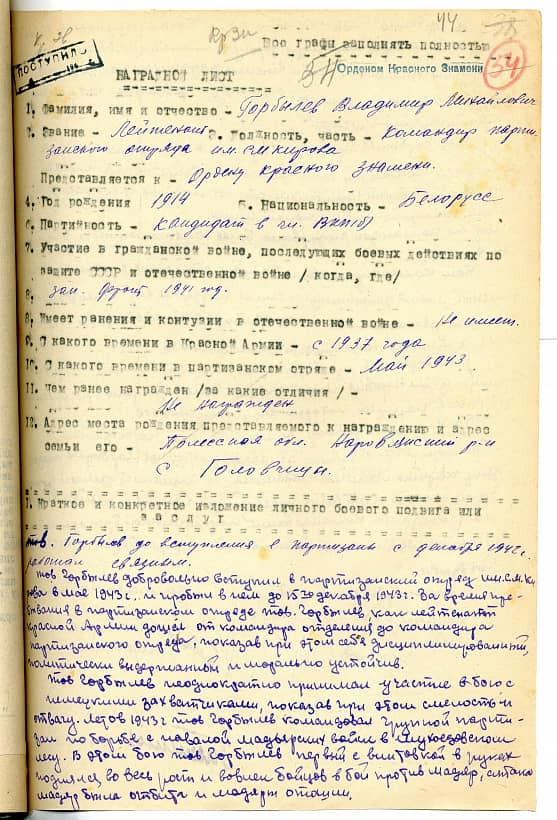 44
ПОСТУПИЛО
194
Все графы заполнять полностью
54
Орденом Красного Знамени
НАГРАДНОЙ ЛИСТ
1. Фамилия, имя и отчество - Горбылев Владимир Михайлович
2. Звание - Лейтенант 3. Должность, часть - Командир парти-
занского отряда им. С.М. Кирова
Представляется к - Ордену Красного Знамени.
4. Год рождения 1914 5. Национальность - Белорусс
6. Партийность - кандидат в чл. ВКП(б)
7. Участие в гражданской войне, последующих боевых действиях по
защите СССР и отечественной войне /когда, где/
зап. фронт 1941 год.
8. Имеет ранения и контузии в отечественной войне - Не имеет.
9. С какого времени в Красной Армии - с 1937 года
10. С какого времени в партизанском отряде - Май 1943
11. Чем ранее награжден /за какие отличия/ -
Не награжден
12. Адрес места рождения представляемого к награждению и адрес
семьи его - Полесская обл. Наровлянский р-н
с Головчицы.
1. Краткое и конкретное изложение личного боевого подвига или
заслуг
тов. Горбылев до вступления в партизаны с декабря 1942 г.
работал связным.
Тов Горбылев добровольно вступил в партизанский отряд им. С.М. Ки-
рова в мае 1943 г. и пробыл в нем до 15 декабря 1943 г. За время пре-
бывания в партизанском отряде тов. Горбылев, как лейтенант
красной Армии дошел от командира отделения до командира
партизанского отряда, показав при этом себя дисциплинированным,
политически выдержанным и морально устойчив.
Тов Горбылев неоднократно принимал участие в бою с
немецкими захватчиками, показав при этом смелость и
отвагу. Летом 1943 г тов Горбылев командовал группой парти-
зан по борьбе с мадьярских войск в
лесу. В этом бою тов Горбылев первый с винтовкой в руках
поднялся во весь рост и вовлек бойцов в бой против мадьяр,
мадьяр была отбита и мадьяры